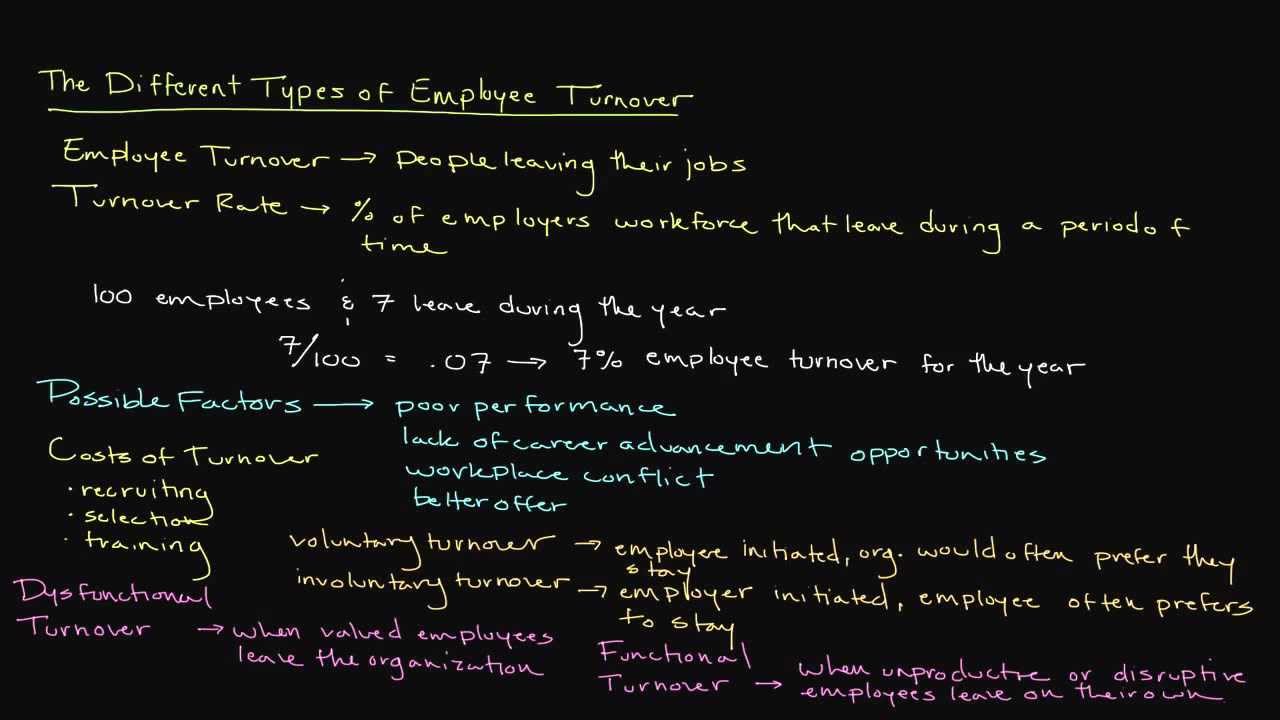 The Different Types of Employee Turnover
Employee Turnover → People leaving their jobs
Turnover Rate → % of employers workforce that leave during a period of
time
100 employees & 7 leave during the year
7/100 = .07 → 7% employee turnover for the year
Possible Factors → poor performance
lack of career advancement opportunities
workplace conflict
better offer
Costs of Turnover
· recruiting
· selection
· training
voluntary turnover → employee initiated, org. would often prefer they
stay
involuntary turnover → employer initiated, employee often prefers
to stay
Dysfunctional
Turnover → when valued employees
leave the organization
Functional
Turnover → when unproductve or disruptive
employees leave on their own